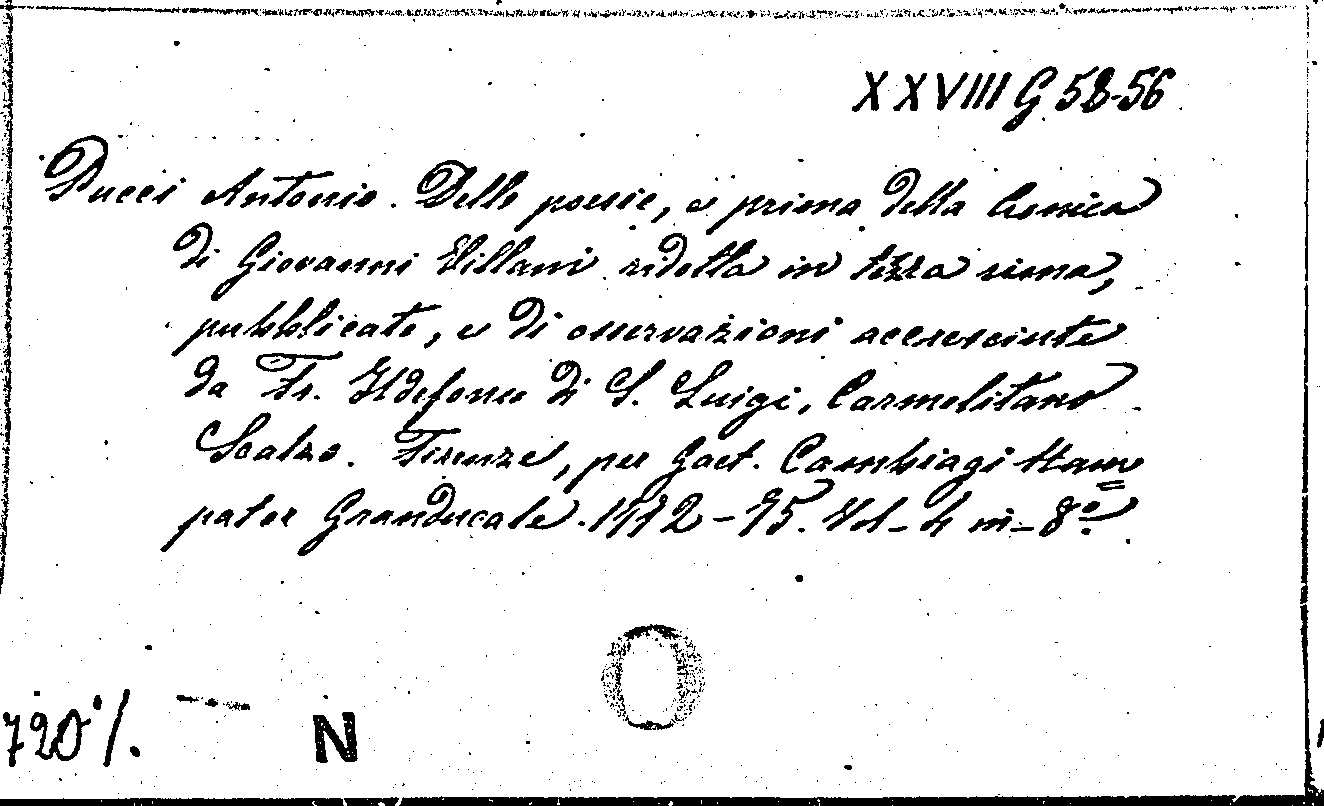 XXVIII G 58-56
Pucci Antonio. Delle poesie, e prima della Cronica
di Giovanni Villani ridotta in terza rima,
pubblicate, e di osservazioni accresciute
da Fr. Ildefonso di S. Luigi, Carmelitano
Scalzo. Firenze, per Gaet. Cambiagi Stam=
pator Granducale. 1772-75. Vol-4 in-8º.
N